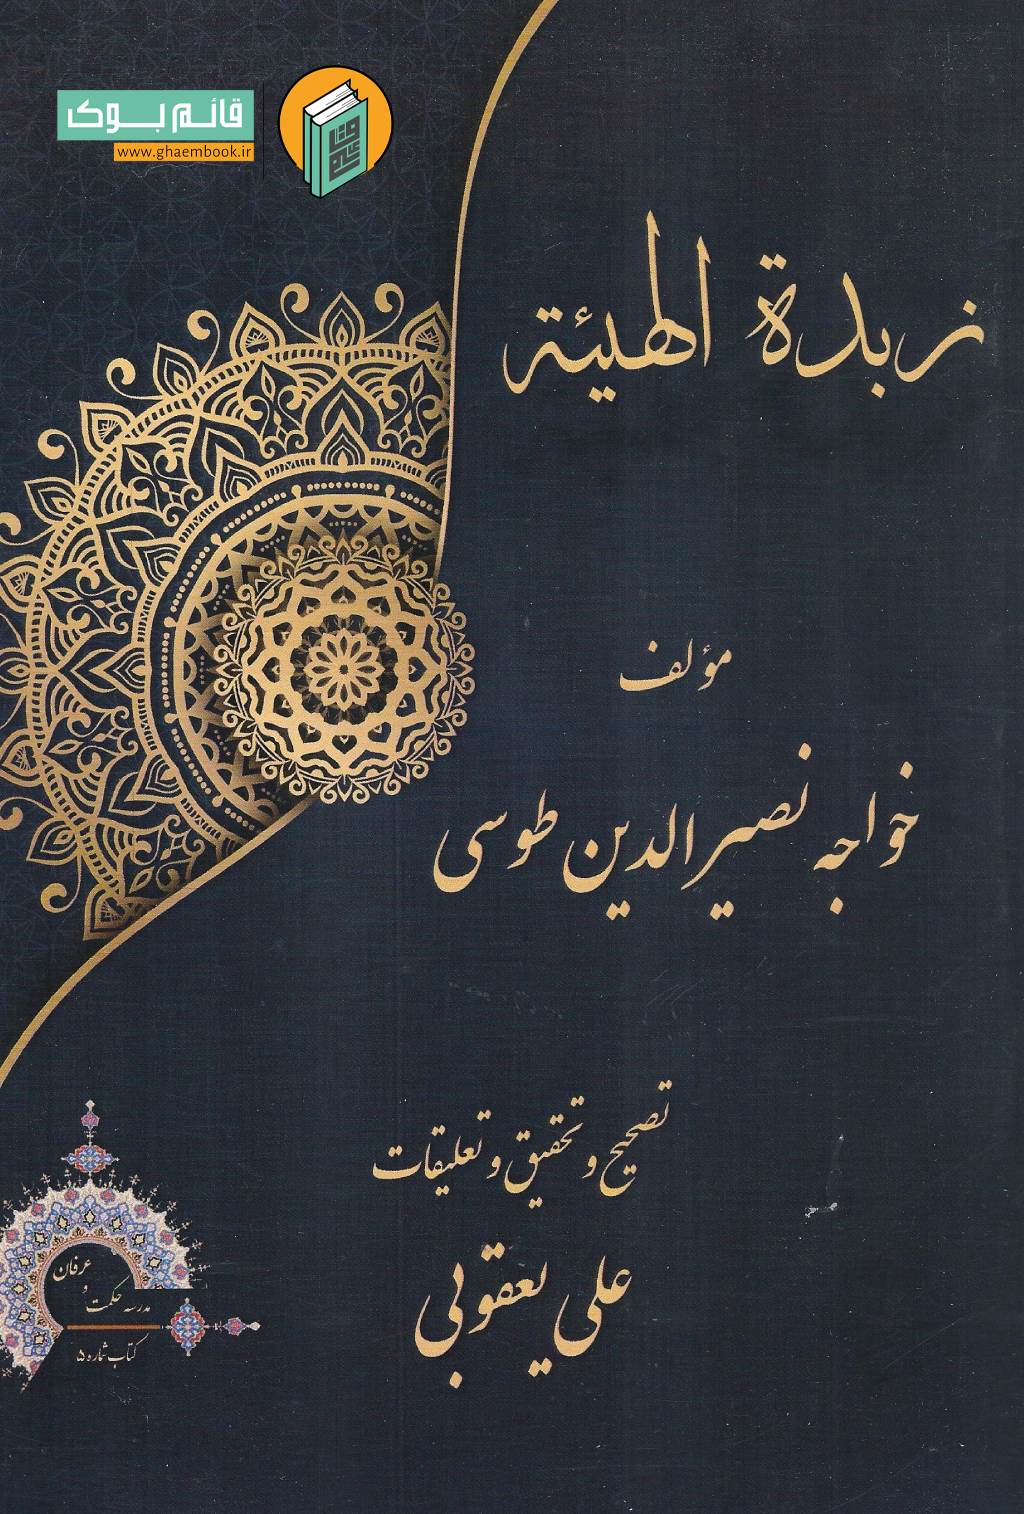 قائم بوک
www.ghaembook.ir
زبدة الهيئة
مؤلف
خواجه نصیرالدین طوسی
تصحیح و تحقیق و تعلیقات
علی یعقوبی
مدرسه حکمت و عرفان
کتاب شماره ۵